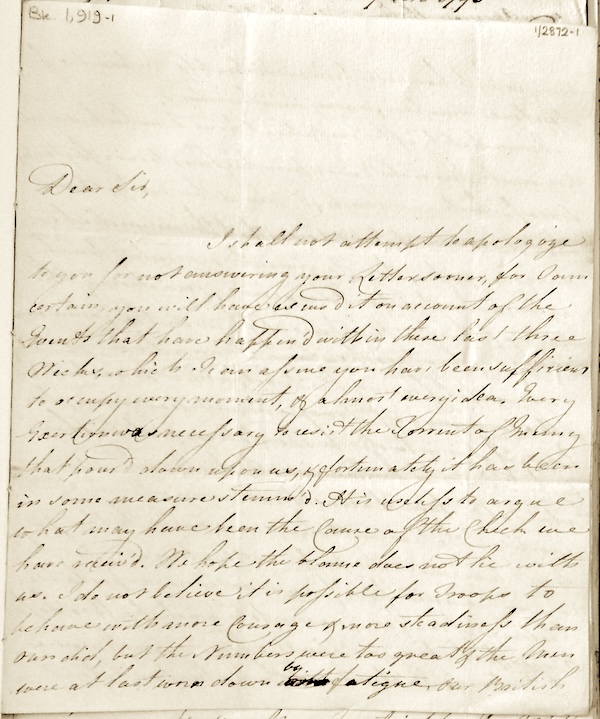 Bk. 1,919-1
1/2872-1
Dear Sir,
I shall not attempt to apologize
to you for not answering your Letter sooner, for I am
certain you will have excused it on account of the
Events that have happen'd within these last three
Weeks, which I can assure you have been sufficient
to occupy every moment, & almost every idea. Every
Exertion was necessary to resist the Torrent of Enemy
that pour'd down upon us, & fortunately it has been
in some measure stemm'd. It is useless to argue
what may have been the Cause of the Check we
have receiv'd. We hope the blame does not lie with
us. I do not believe it is possible for Troops to
behave with more Courage & more steadiness than
ours did, but the Numbers were too great & the Men
were at last worn down by fatigue. Our British